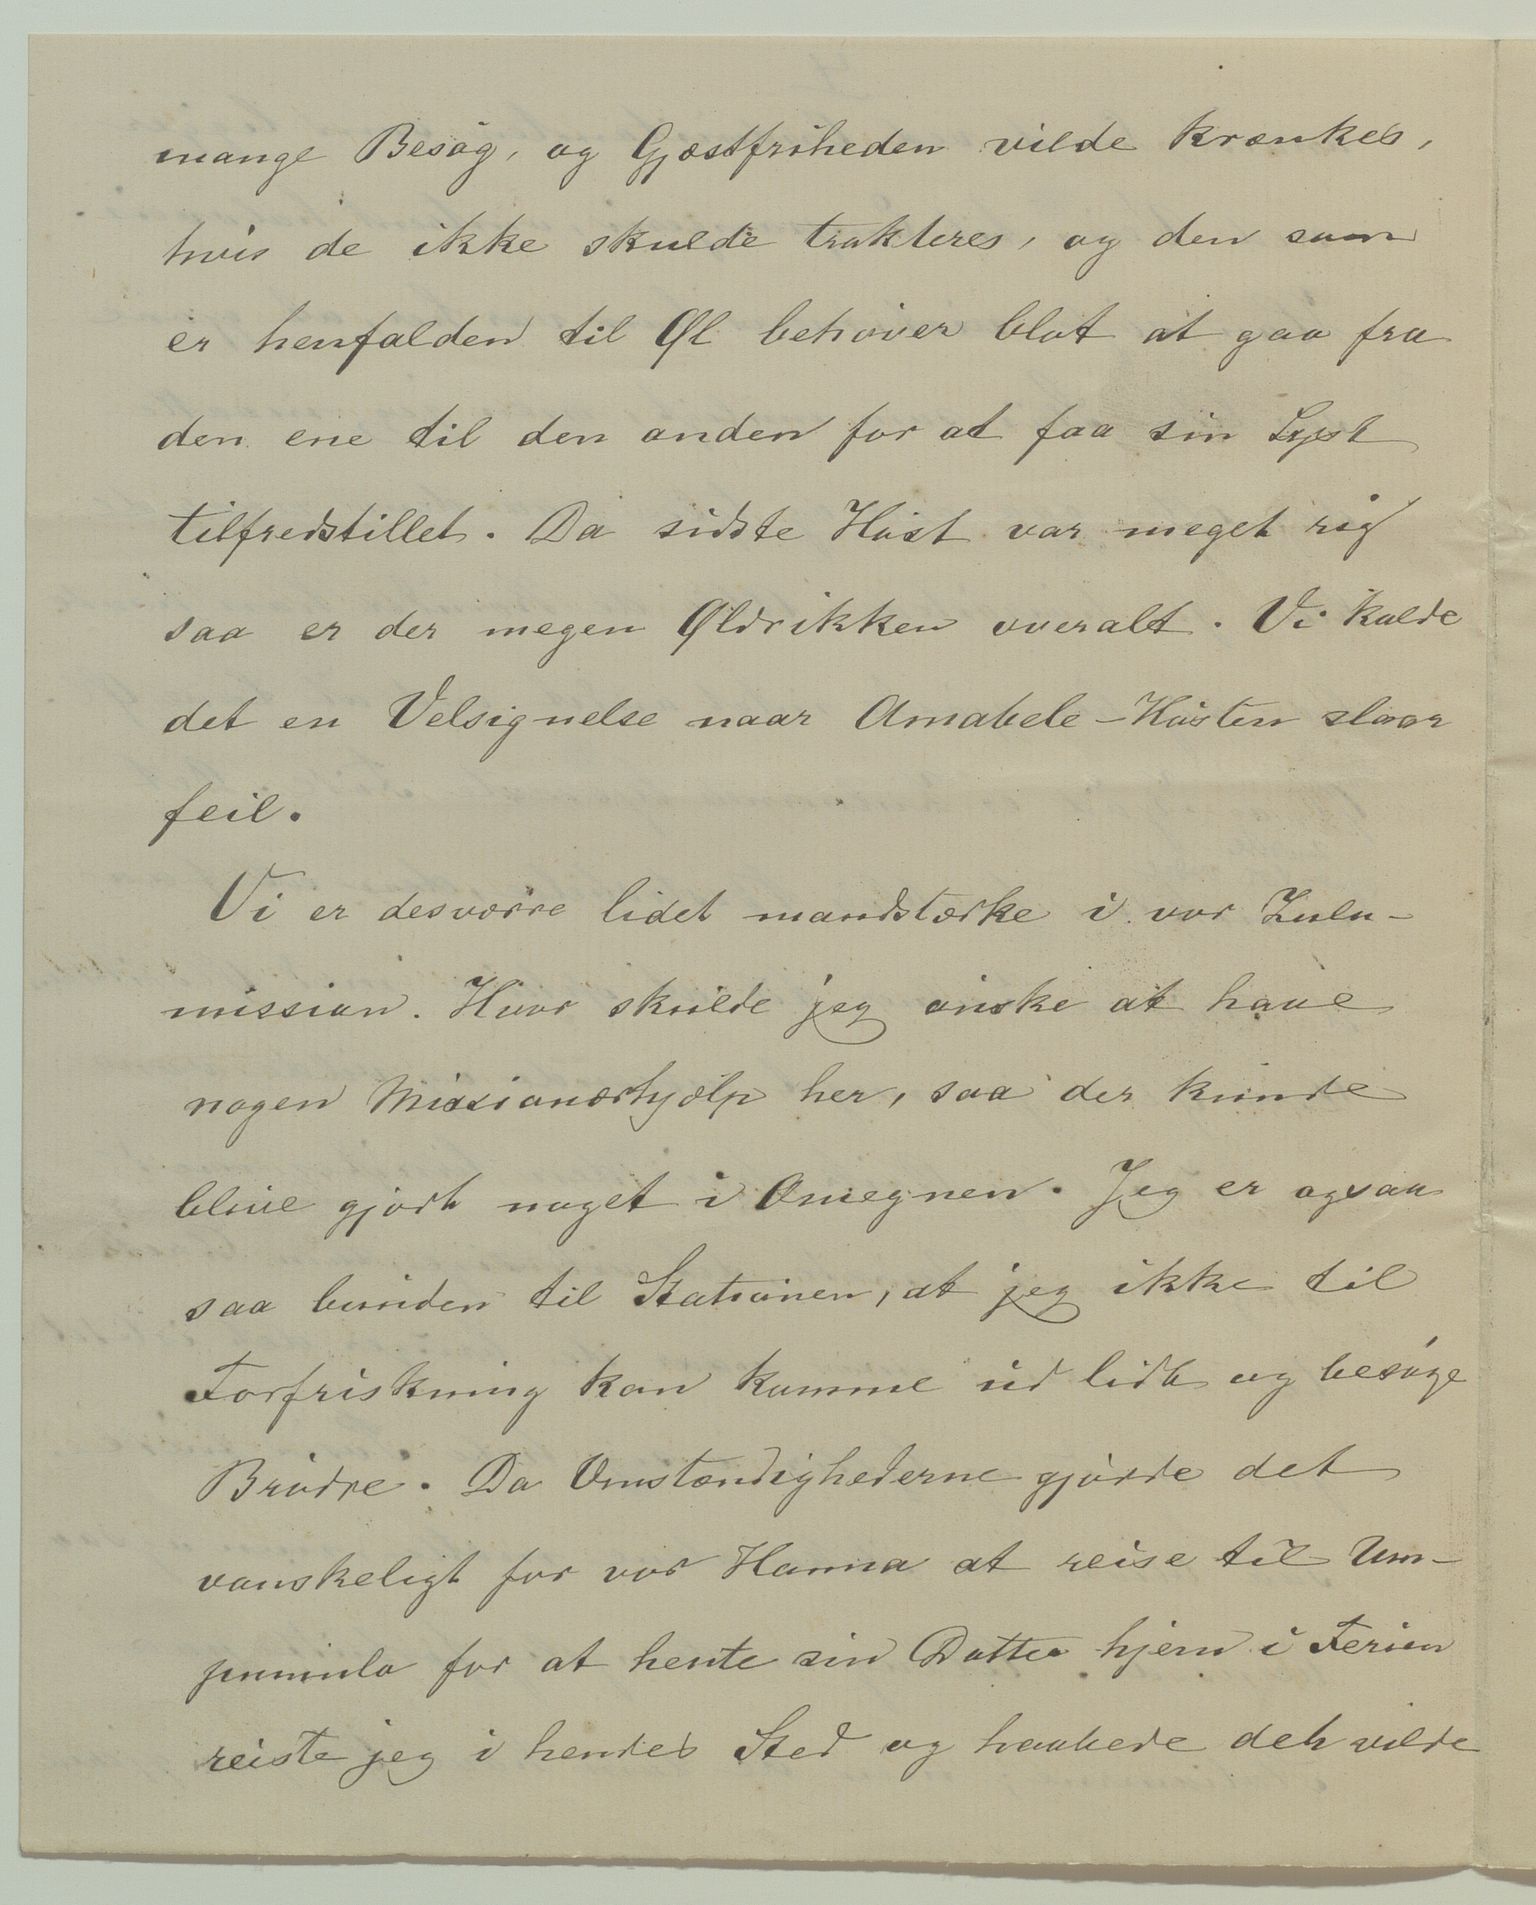 mange Besøg, og Gjæstfriheden vilde krænkes,
hvis de ikke skulde trakteres, og den som
er henfalden til Øl behøver blot at gaa fra
den ene til den anden for at faa sin Lyst
tilfredstillet. Da sidste Høst var meget rig
saa er der megen Øldrikken overalt. Vi kalde
det en Velsignelse naar Amabele-Høsten slaar
feil.
Vi er desværre lidet mandstærke i vor Zulu-
mission. Hvor skulde jeg ønske at have
nogen Missionærhjælp her, saa der kunde
blive gjort noget i Omegnen. Jeg er ogsaa
saa bunden til Stationen, at jeg ikke til
Forfriskning kan komme ud lidt og besøge
Brødre. Da Omstændighederne gjorde det
vanskeligt for vor Hanna at reise til Um-
pumulo for at hente sin Datter hjem i Ferien
reiste jeg i hendes Sted og haabede det vilde